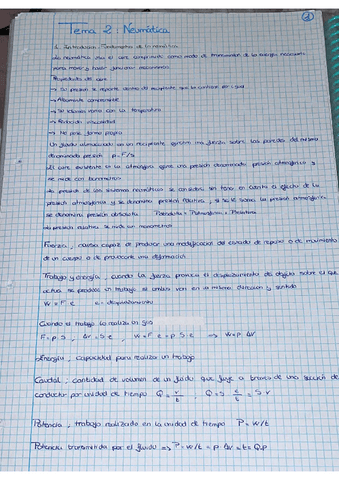 2
Tema 2: Neumática
1. Introducción. Fundamentos de la neumática
La neumática usa el aire comprimido como modo de transmisión de la energía necesaria
para mover y hacer funcionar mecanismos.
Propiedades del aire
→ Su presión se reparte dentro del recipiente que lo contiene por igual
→ Altamente compresible
→ Su volumen varia con la temperatura
→ Reducida viscosidad
→ No posee forma propia
Un fluido almacenado en un recipiente ejerce una fuerza sobre las paredes del mismo
denominada presión p=F/s
El aire existente en la atmósfera ejerce una presión denominada presión atmosférica y
se mide con barómetros
La presión de los sistemas neumáticos se considera sin tener en cuenta el efecto de la
presión atmosférica y se denomina presión relativa, si se le suma la presión atmosférica
se denomina presión absoluta Pabsoluta = Patmosférica + Prelativa
La presión relativa se mide con manómetros
Fuerza, causa capaz de producir una modificación del estado de reposo o de movimiento
de un cuerpo o de provocarle una deformación
Trabajo y energía, cuando la fuerza provoca el desplazamiento de objeto sobre el que
actua se produce un trabajo si ambos van en la misma dirección y sentido
W = F · e e = desplazamiento
Cuando el trabajo lo realiza un gas
F = p · S , ΔV = S · e , W = F · e = p · S · e ⇒ W = p · ΔV
Energía, capacidad para realizar un trabajo
Caudal, cantidad de volumen de un fluido que fluye a traves de una sección de
conductor por unidad de tiempo Q = v/t , Q = S · e/t = S · v
Potencia, trabajo realizado en la unidad de tiempo P = W/t
Potencia transmitida por el fluido ⇒ P = W/t = p · ΔV = t = Q · p